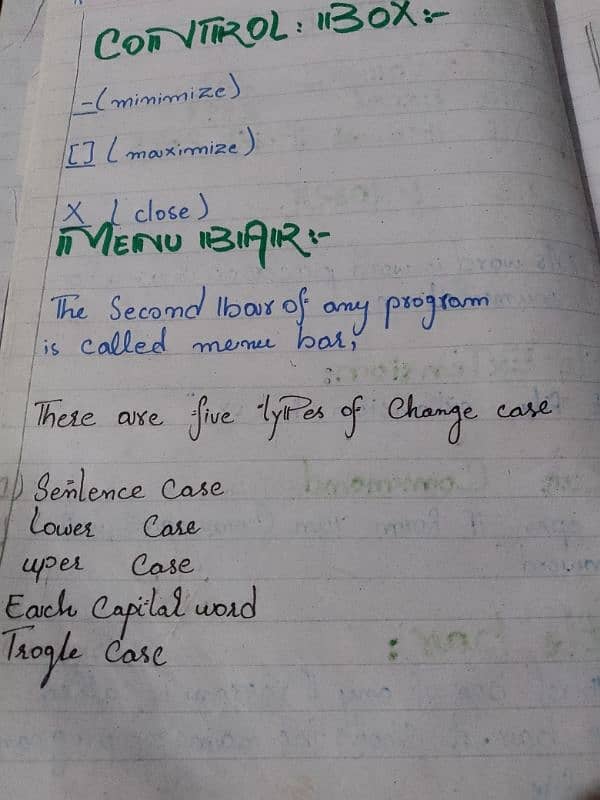 CONTROL: BOX:-
-(minimize)
[] (maximize)
X (close)
MENU BAR:-
The Second bar of any program
is called menu bar,
There are five types of Change case
1) Sentence Case
Lower Case
uper Case
Each Capital word
Trogle Case